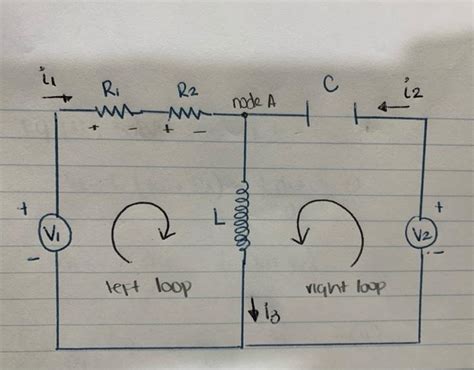 i1 R1 R2 node A C i2
+ - + -
+ V1 - L + V2 -
left loop right loop
i3